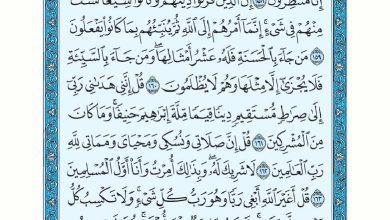 إِنَّا مُنتَظِرُونَ ١٥٨ إِنَّ الَّذِينَ فَرَّقُوا دِينَهُمْ وَكَانُوا شِيَعًا لَّسْتَ
مِنْهُمْ فِي شَيْءٍ إِنَّمَا أَمْرُهُمْ إِلَى اللَّهِ ثُمَّ يُنَبِّئُهُم بِمَا كَانُوا يَفْعَلُونَ
١٥٩ مَن جَاءَ بِالْحَسَنَةِ فَلَهُ عَشْرُ أَمْثَالِهَا وَمَن جَاءَ بِالسَّيِّئَةِ
فَلَا يُجْزَىٰ إِلَّا مِثْلَهَا وَهُمْ لَا يُظْلَمُونَ ١٦٠ قُلْ إِنَّنِي هَدَانِي رَبِّي
إِلَىٰ صِرَاطٍ مُّسْتَقِيمٍ دِينًا قِيَمًا مِّلَّةَ إِبْرَاهِيمَ حَنِيفًا وَمَا كَانَ
مِنَ الْمُشْرِكِينَ ١٦١ قُلْ إِنَّ صَلَاتِي وَنُسُكِي وَمَحْيَايَ وَمَمَاتِي لِلَّهِ
رَبِّ الْعَالَمِينَ ١٦٢ لَا شَرِيكَ لَهُ وَبِذَٰلِكَ أُمِرْتُ وَأَنَا أَوَّلُ الْمُسْلِمِينَ
١٦٣ قُلْ أَغَيْرَ اللَّهِ أَبْغِي رَبًّا وَهُوَ رَبُّ كُلِّ شَيْءٍ وَلَا تَكْسِبُ كُلُّ